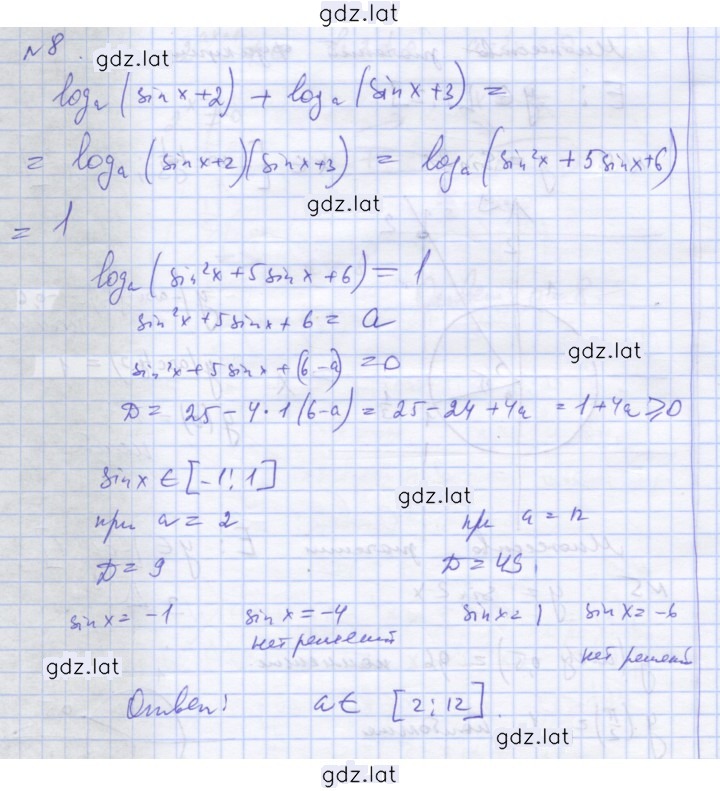 gdz.lat
№8
gdz.lat
logₐ (sin x + 2) + logₐ (sin x + 3) =
= logₐ (sin x + 2)(sin x + 3) = logₐ (sin²x + 5 sin x + 6)
gdz.lat
= 1
logₐ (sin²x + 5 sin x + 6) = 1
sin²x + 5 sin x + 6 = a
gdz.lat
sin²x + 5 sin x + (6 - a) = 0
D = 25 - 4 · 1 (6 - a) = 25 - 24 + 4a = 1 + 4a ≥ 0
sin x ∈ [-1; 1]
gdz.lat
при a = 2 при a = 12
D = 9 D = 49.
sin x = -1 sin x = -4 sin x = 1 sin x = -6
нет решений нет решений
gdz.lat
Ответ: a ∈ [2; 12].
gdz.lat
gdz.lat